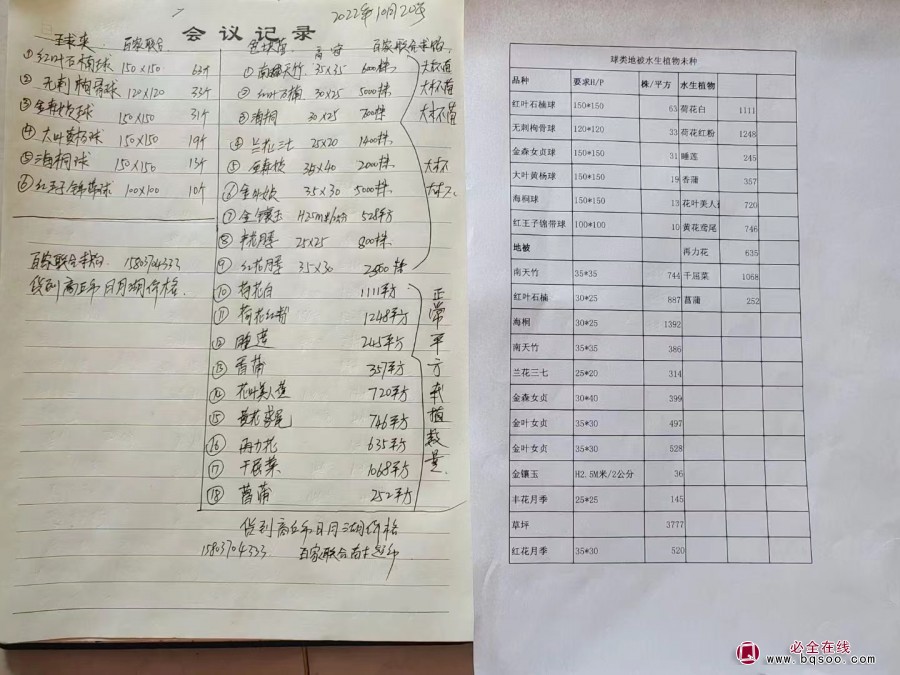 2022年10月20号
会议记录
球类 百家联合
①红叶石楠球 150×150 63个
②无刺枸骨球 120×120 33个
③金森女贞球 150×150 31个
④大叶黄杨球 150×150 19个
⑤海桐球 150×150 13个
⑥红王子锦带球 100×100 10个
百家联合采购 15803704333
货到商丘市日月湖价格
色块苗 高 百家联合采购
①南天竹 35×35 6000株 大杯苗
②红叶石楠 30×25 5000株 大杯苗
③海桐 30×25 700株 大杯苗
④兰花三七 25×20 1400株
⑤金森女贞 35×40 2000株 大杯
⑥金叶女贞 35×30 5000株 大杯
⑦金镶玉 H2.5m/2公分 528平方
⑧丰花月季 25×25 800株
⑨红花月季 35×30 2500株
⑩荷花白 1111平方
⑪荷花红粉 1248平方
⑫睡莲 245平方
⑬香蒲 357平方
⑭花叶美人蕉 720平方
⑮黄花鸢尾 746平方
⑯再力花 635平方
⑰千屈菜 1068平方
⑱菖蒲 252平方
正常平方米植数量
货到商丘市日月湖价格
15803704333 百家联合苗木
球类地被水生植物未种
品种 要求H/P 株/平方 水生植物
红叶石楠球 150*150 63 荷花白 1111
无刺枸骨球 120*120 33 荷花红粉 1248
金森女贞球 150*150 31 睡莲 245
大叶黄杨球 150*150 19 香蒲 357
海桐球 150*150 13 花叶美人 720
红王子锦带球 100*100 10 黄花鸢尾 746
地被 再力花 635
南天竹 35*35 744 千屈菜 1068
红叶石楠 30*25 887 菖蒲 252
海桐 30*25 1392
南天竹 35*35 386
兰花三七 25*20 314
金森女贞 30*40 399
金叶女贞 35*30 497
金叶女贞 35*30 528
金镶玉 H2.5M米/2公分 36
丰花月季 25*25 145
草坪 3777
红花月季 35*30 520
必全在线
www.bqsoo.com